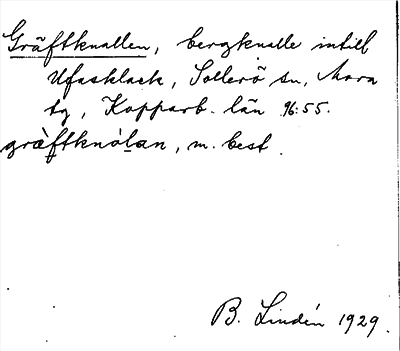 Gräftknallen, bergknalle intill
Ufasklack, Sollerö sn, Mora
tg, Kopparb. län 96:55.
gräftknálan, m. best.
B. Lindén 1929.